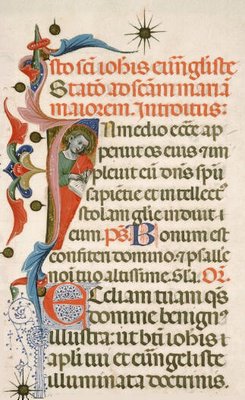 Isto sci iohis euangliste
Statō ad scam mariā
maiorem. Introitus:
In medio ecce ap
peruit os eius ⁊ im
pleuit eū dn̄s sp̄u
sapientie et intellect
stolam glīe induit i
eum. Ps. Bonum est
confiteri domino: ⁊ psalle
noī tuo altissime. Gla. Or.
Ecclīam tuam qs
domine benign⁹
illustra: ut btī iohis
apl̄i tui et euūgeliste
illuminata doctrinis.